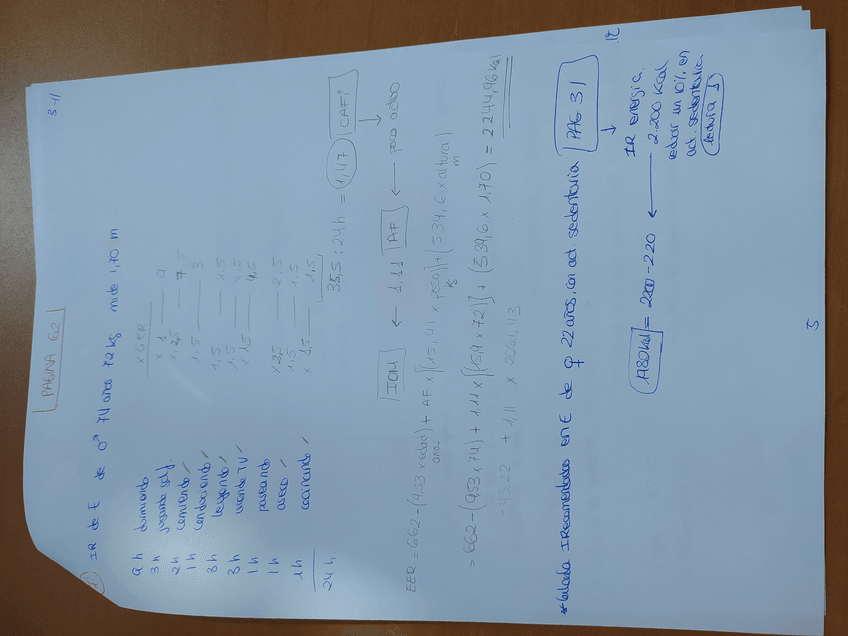 PAGINA 62
3-11
1) IR de E de ♂ 74 años 72 kg mide 1,70 m
x GER
9 h durmiendo x 1 — 9
3 h jugando golf. x 2,5 — 7,5
2h comiendo ✓ 1,5 — 3
1h conduciendo ✓ 1,5 — 1,5
3h leyendo ✓ 1,5 — 4,5
3h viendo TV ✓ x 1,5 — 4,5
1h paseando x 2,5 — 2,5
1h aseo ✓ 1,5 — 1,5
1h cocinando ✓ x 1,5 — 1,5
24 h.
35,5 : 24h = 1,47 CAFi
IOM ← 1.11 AF ← poco activo
EER = 662 - (9,53 x edad) + AF x [(15,91 x peso)] + (539,6 x altura)
años kg m
= 662 - (9,53 x 74) + 1.11 x [(15,9 x 72)] + (539,6 x 1,70) = 2244,96 Kcal
- 43,22 + 1,11 x 2061,43
* Calcula IRecomendadas en E de ♀ 22 años, con act. sedentaria PAG 31
IR energia.
1980 Kcal = 2200 - 220 ← 2.200 Kcal
reducir un 10% en
act. sedentaria
5